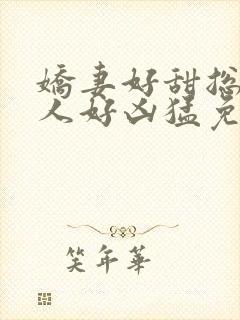 嬌妻好甜揔
人好凶猛免
笑年華